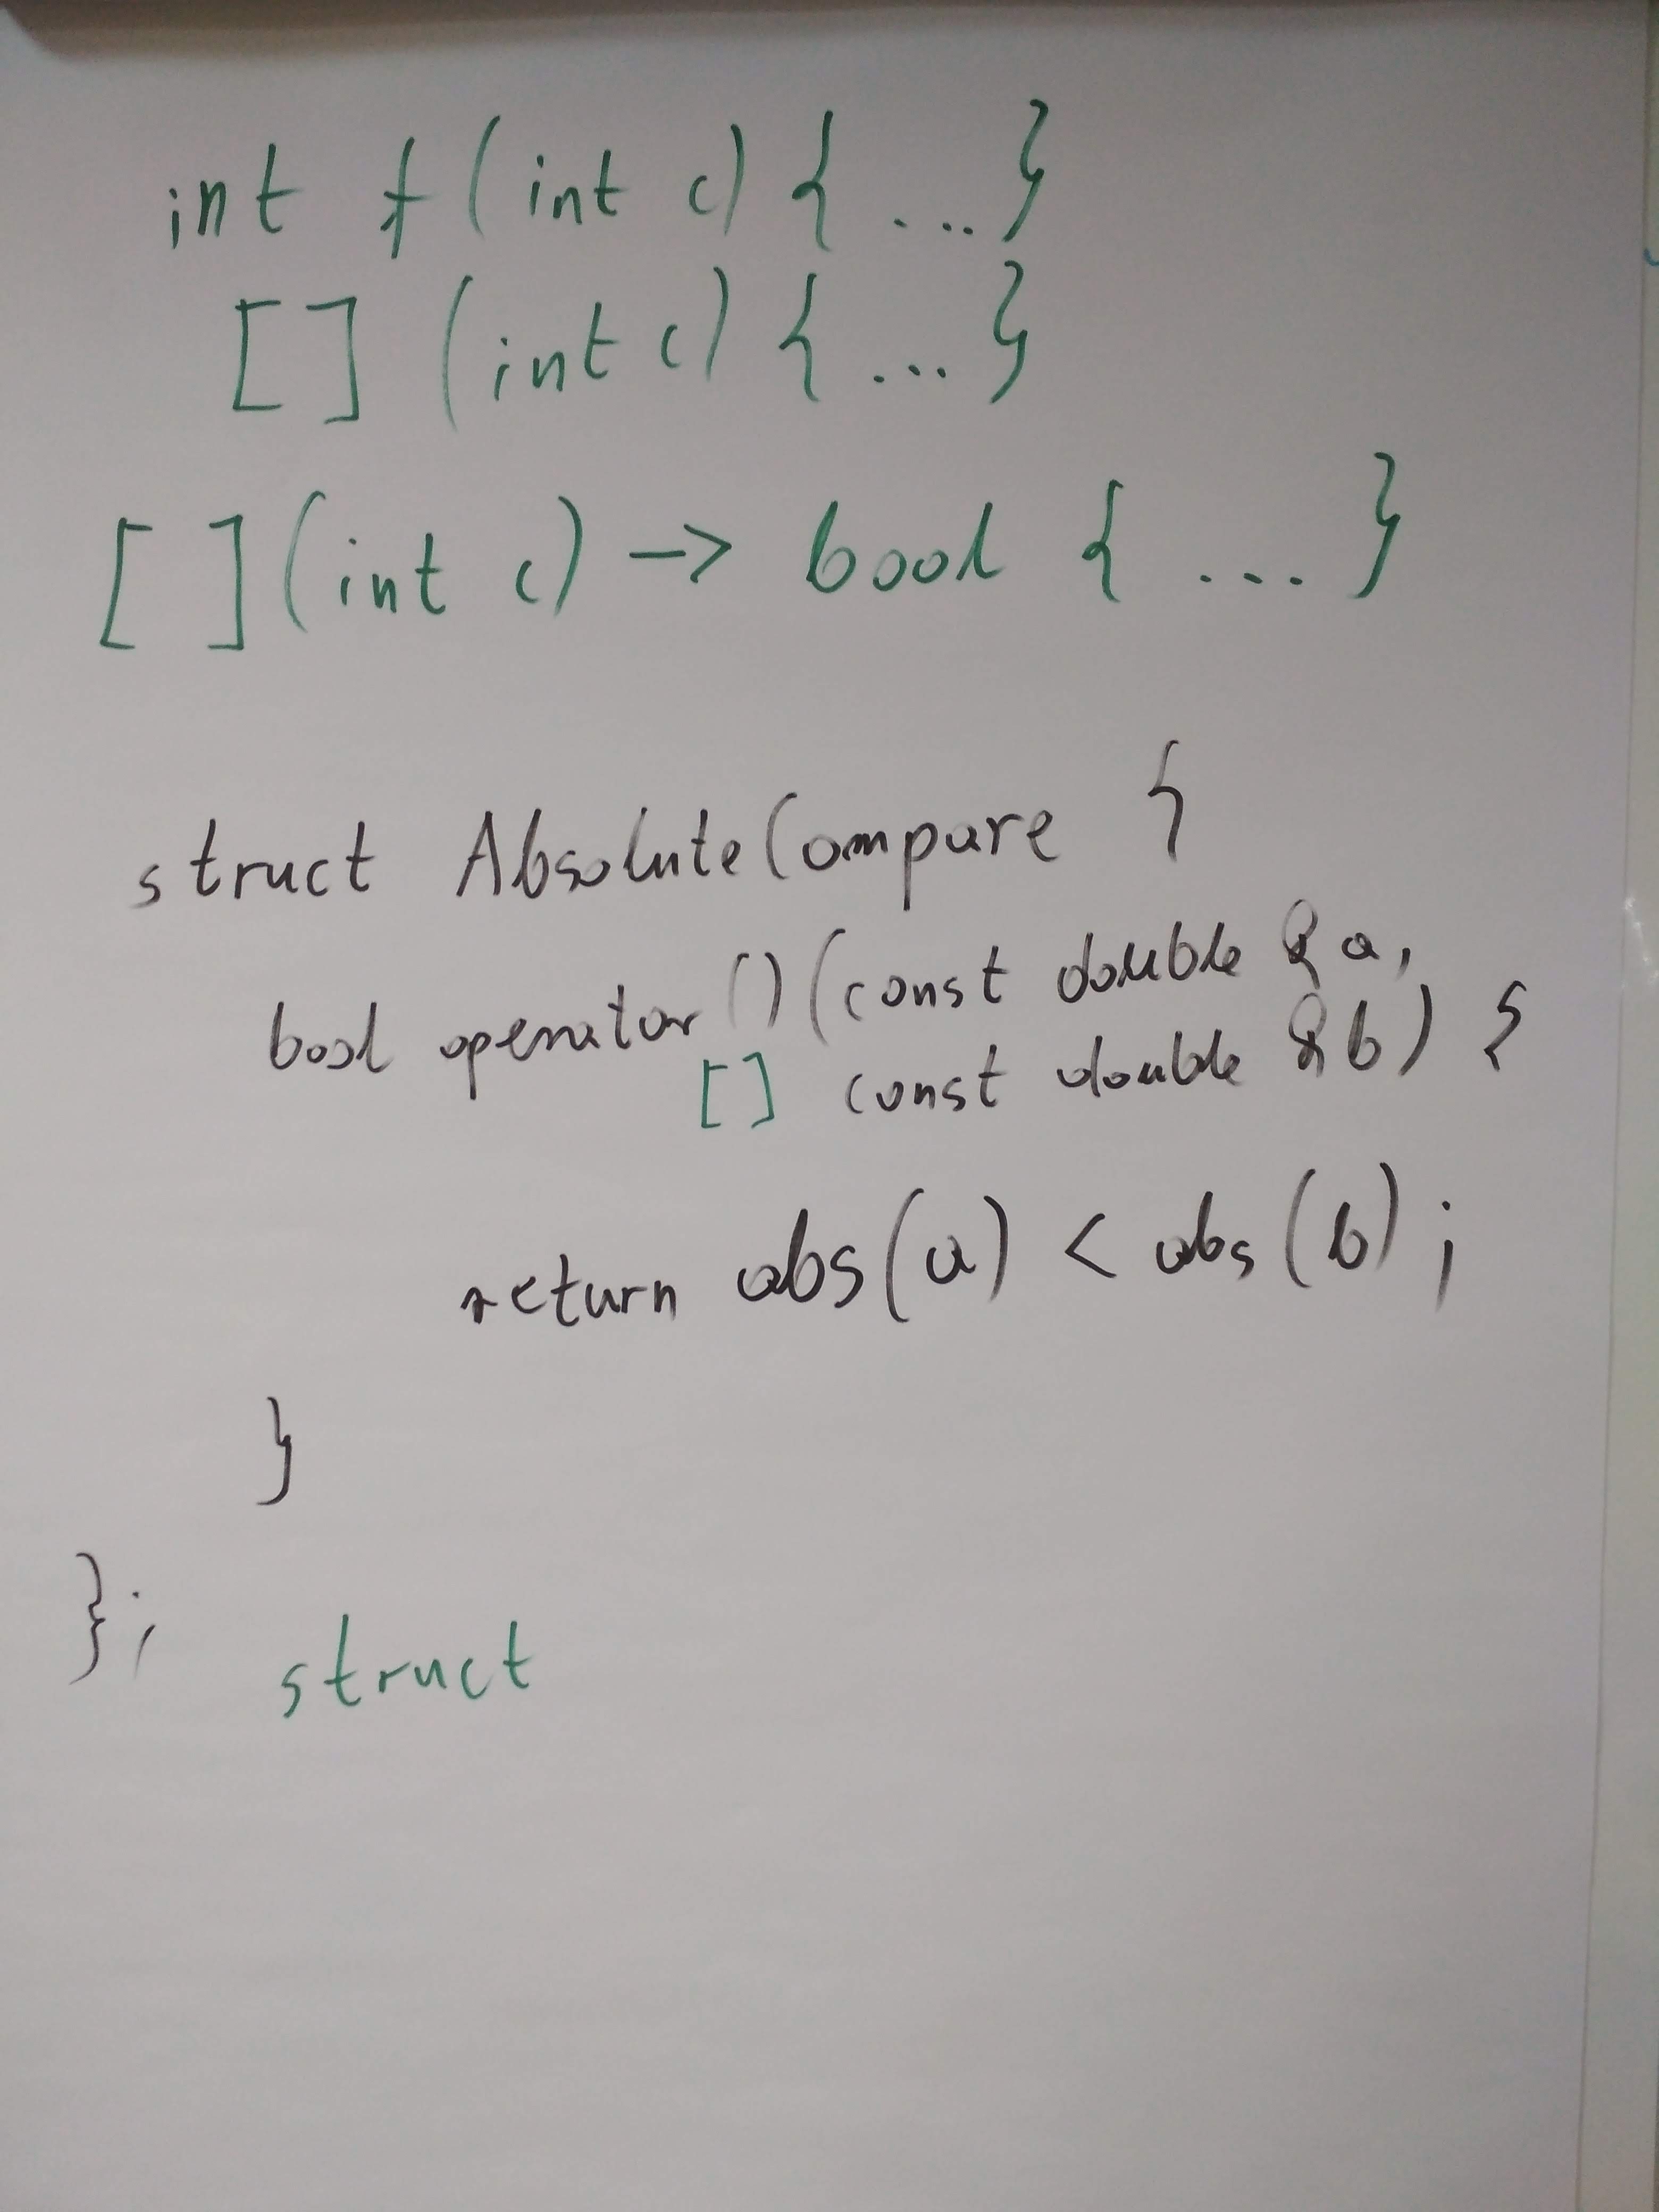 int f(int c) { ... }
[] (int c) { ... }
[ ](int c) -> bool { ... }
struct AbsoluteCompare {
bool operator()(const double &a,
[] const double &b) {
return abs(a) < abs(b);
}
};
struct